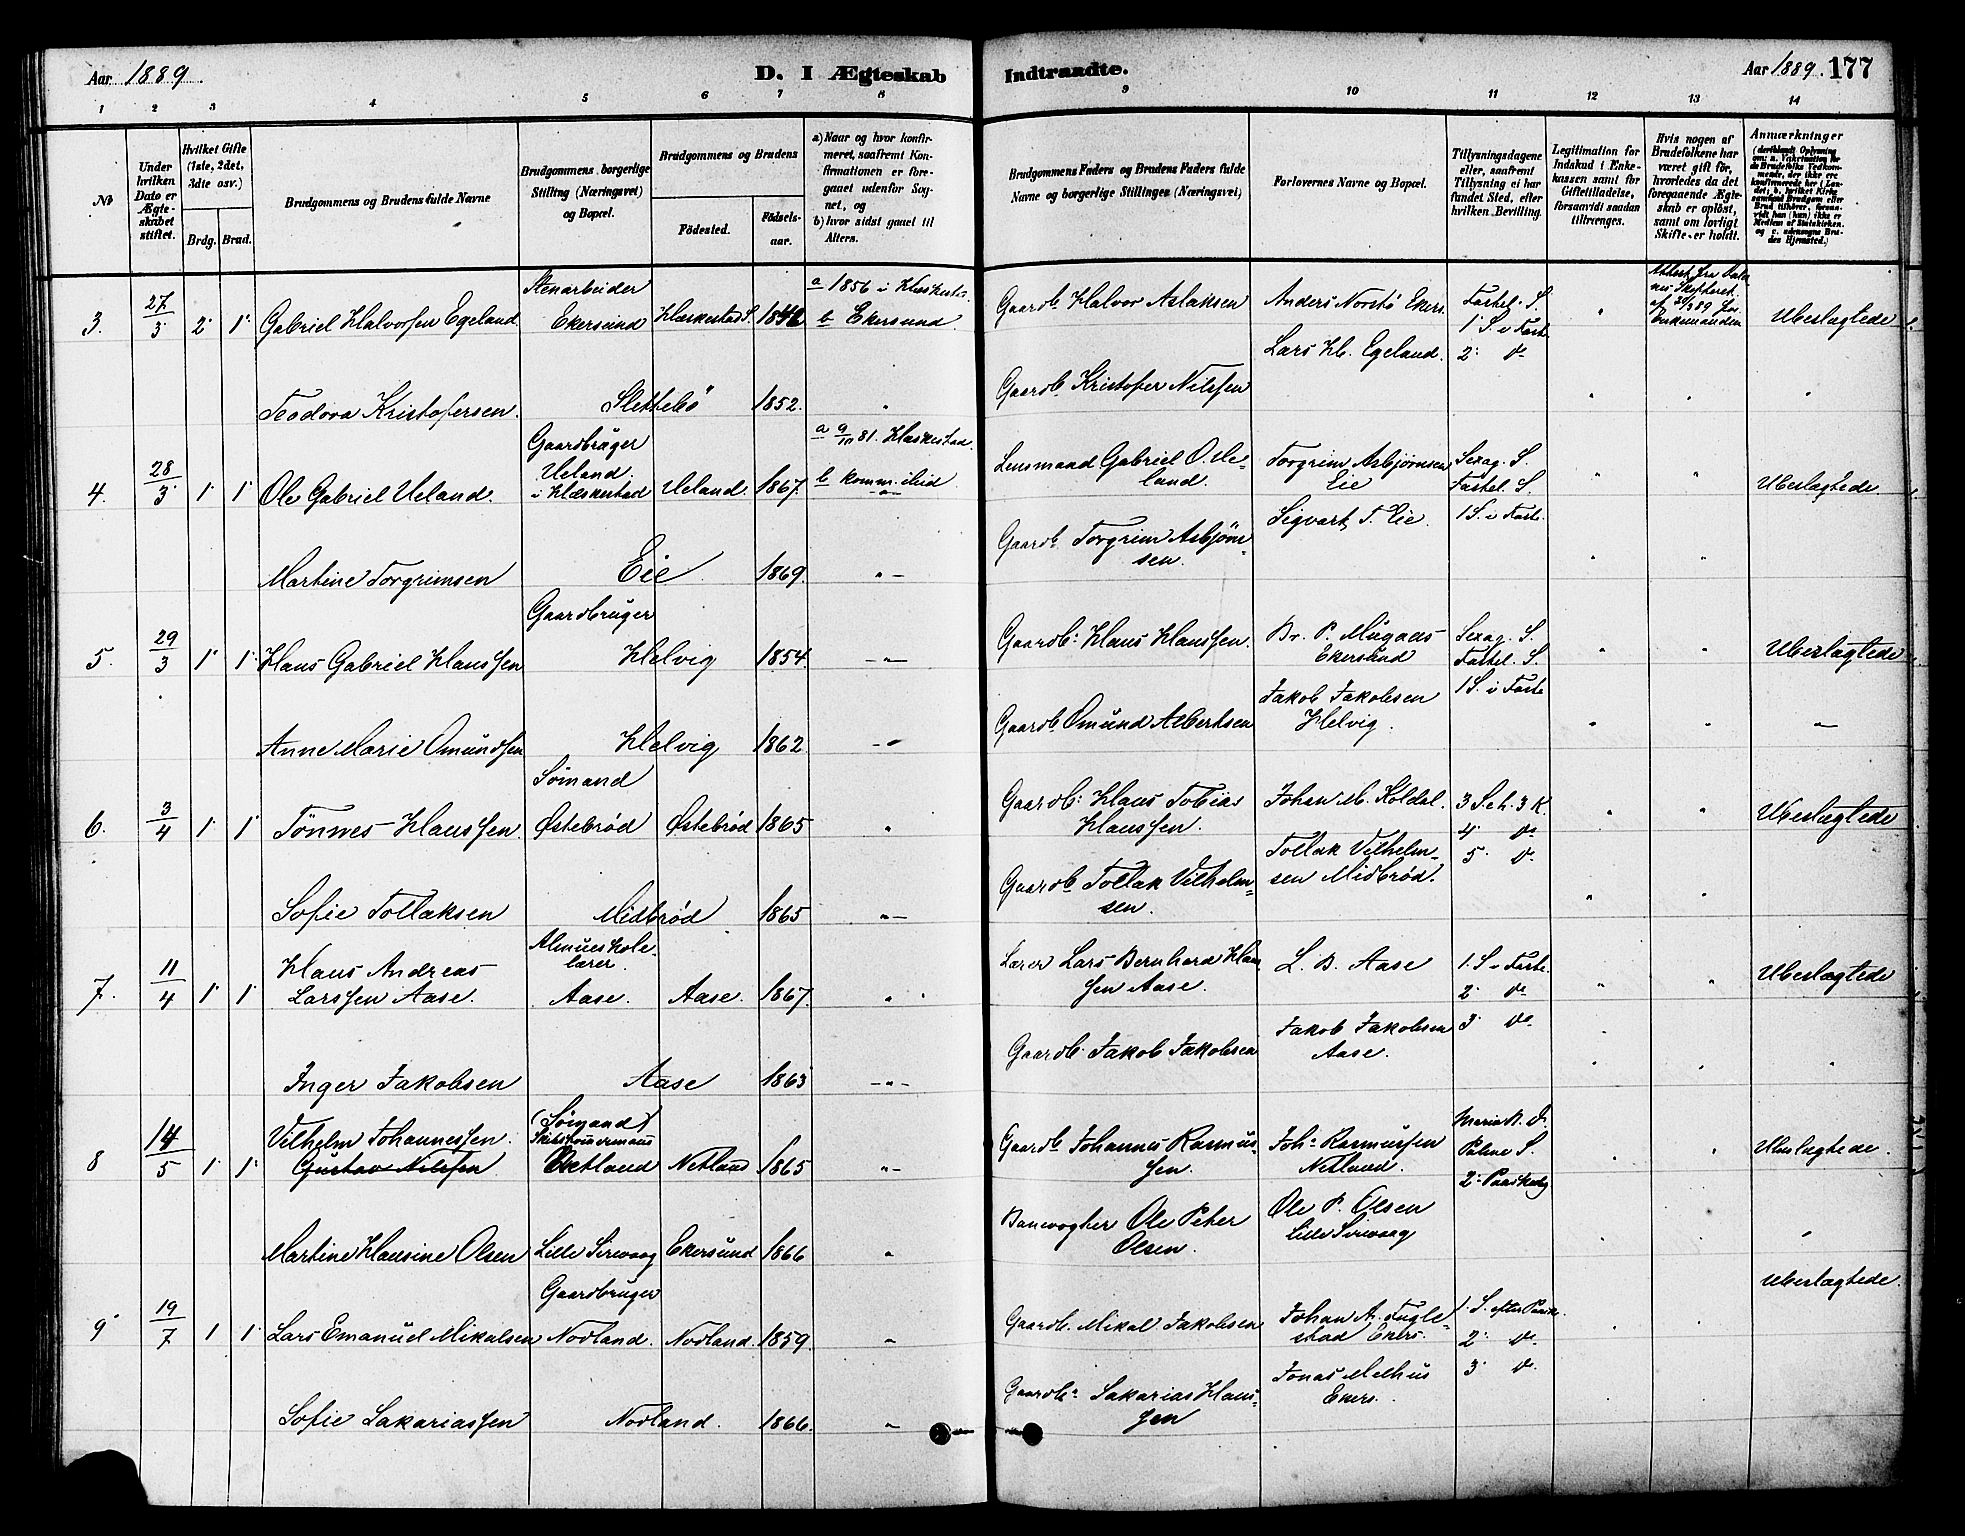 Aar 1889. D. I Ægteskab Indtraadte. Aar 1889. 177
1 2 3 4 5 6 7 8 9 10 11 12 13 14
No
Under hvilken Dato er Ægteskabet stiftet.
Hvilket Gifte (1ste, 2det, 3die osv.)
Brdg. Brud.
Brudgommens og Brudens fulde Navne
Brudgommens borgerlige Stilling (Næringsvei) og Bopæl.
Brudgommens og Brudens
Fødested.
Fødselsaar.
a) Naar og hvor konfirmeret, saafremt Konfirmationen er foregaaet udenfor Sognet, og
b) hvor sidst gaaet til Alters.
Brudgommens Faders og Brudens Faders fulde Navne og borgerlige Stillinger (Næringsvei)
Forlovernes Navne og Bopæl.
Tillysningsdagene eller, saafremt Tillysning ei har fundet Sted, efter hvilken Bevilling.
Legitimation for Indskud i Enkekassen samt for Giftetilladelse, forsaavidt saadan tiltrænges.
Hvis nogen af Brudefolkene har været gift før, hvorledes da det foregaaende Ægteskab er opløst, samt om lovligt Skifte er holdt.
Anmærkninger
3. 27/3 2 1 Gabriel Halvorsen Egeland
Stenarbeider
Ekersund
a 1856 i
b Ekersund.
Gaardb. Halvor Aslaksen
Anders Norstø Ekers.
Lars Hb. Egeland.
Fastel. S.
1 S. i Faste
2 do
Ubeslægtede
Teodora Kristofersen. Slettebø 1852. "
Gaardb. Kristofer Nilssen
4. 28/3 1 1 Ole Gabriel Ueland.
Gaardbruger
Ueland
i Heskestad Ueland. 1867.
a 9/10 81. Heskestad
b komm. ibid
Lensmand Gabriel O. Ueland.
Torgrim Asbjørnsen
Eie
Sigvart T. Eie.
Sexag. S.
Fastel. S.
1 S. i Faste.
Ubeslægtede
Martine Torgrimsen Eie 1869. "
Gaardb. Torgrim Asbjørnsen.
5. 29/3 1 1 Hans Gabriel Hanssen
Gaardbruger
Helvig 1854. "
Gaardb: Hans Hanssen.
Br. P. Mügaas
Ekersund
Jakob Jakobsen
Helvig.
Sexag. S.
Fastel. S.
1 S. i Faste
Ubeslægtede
Anne Marie Omundsen Helvig 1862. "
Gaardb. Omund Albertsen
6. 3/4 1 1 Tønnes Hanssen.
Sømand
Østebrød Østebrød 1865 "
Gaardb: Hans Tobias
Hanssen.
Johan M. Koldal.
Tollak Vilhelmsen Midbrød.
3 S. e. h. 3 K.
4 do
5 do
Ubeslægtede
Sofie Tollaksen Midbrød 1865 "
Gaardb Tollak Vilhelmsen.
7. 11/4 1 1 Hans Andreas
Larssen Aase.
Almueskolelærer.
Aase. Aase. 1867. "
Lærer Lars Bernhard Hanssen Aase.
L. B. Aase
Jakob Jakobsen
Aase.
1. S i Faste.
2 do
3 do
Ubeslægtede
Inger Jakobsen Aase 1863 "
Gaardb. Jakob Jakobsen
8 14/5 1 1 Vilhelm Johannessen.
Gustav Nilssen
(Sømand)
Netland Netland 1865 "
Gaardb Johannes Rasmussen.
Joh: Rasmussen
Netland.
Ole P. Olsen
Lille Sirevaag
Maria B. D.
Palme S.
2: Paaskedg
Ubeslægtede.
Martine Hansine Olsen Lille Sirevaag Ekersund 1866 "
Banevogter Ole Peter
Olsen.
9 19/7 1 1 Lars Emanuel Mikalsen
Gaardbruger
Nodland. Nodland. 1859. "
Gaardb. Mikal Jakobsen
Johan A. Fuglestad Ekers.
Jonas Melhus
Ekers.
1. S. efter Paask.
2 do
3 do
Ubeslægtede.
Sofie Sakariassen Nodland. 1866. "
Gaardb: Sakarias Hanssen